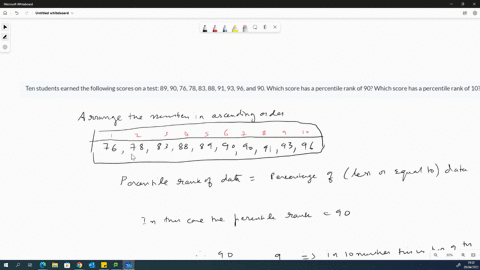 Microsoft Whiteboard
Untitled whiteboard
Ten students earned the following scores on a test: 89, 90, 76, 78, 83, 88, 91, 93, 96, and 90. Which score has a percentile rank of 90? Which score has a percentile rank of 10?
Arrange the numbers in ascending order
1 2 3 4 5 6 7 8 9 10
76, 78, 83, 88, 89, 90, 90, 91, 93, 96
Percentile rank of data = Percentage of (less or equal to) data
In this case the percentile rank = 90
90 9 => in 10 numbers